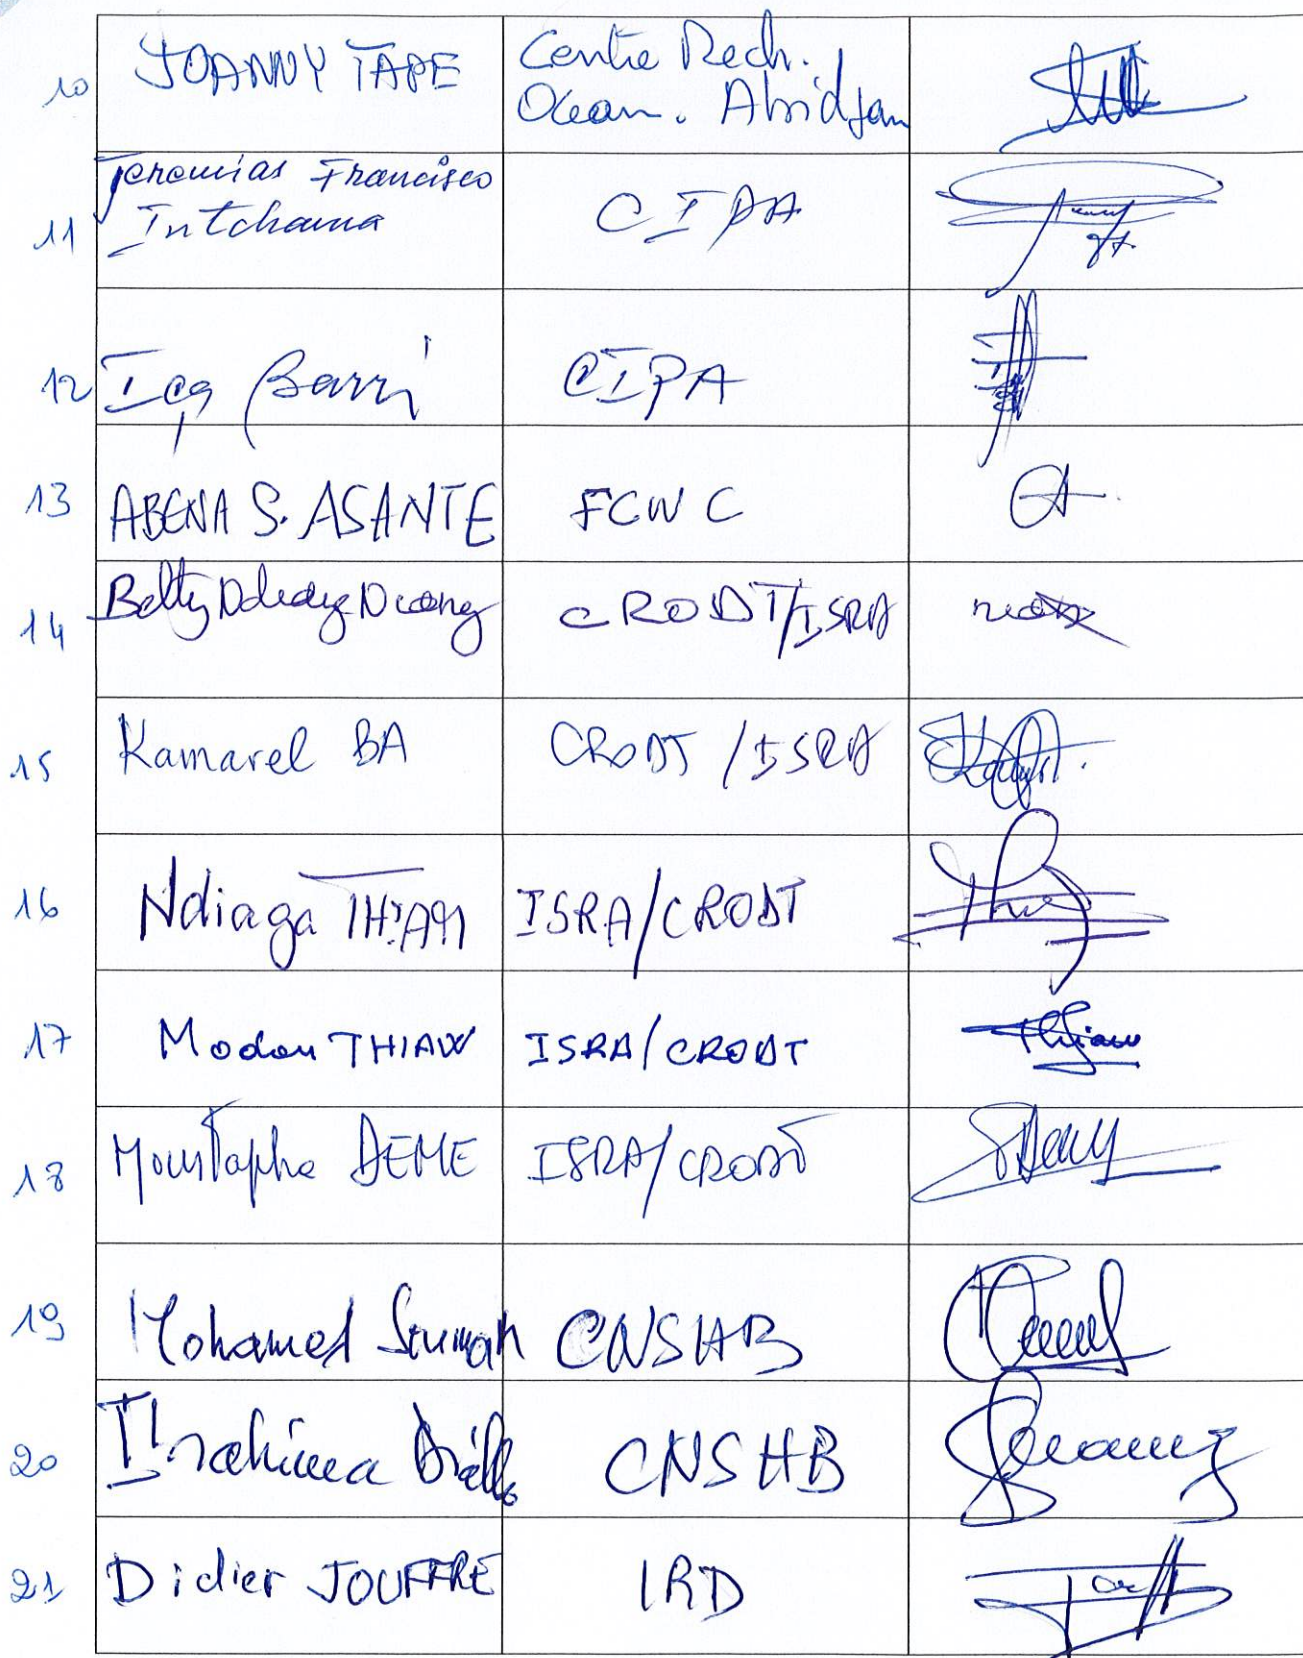 10 JOANNY TAPE Centre Rech.
Ocean. Abidjan
11 Jeremias Francisco
Intchama CIPA
12 Iça Barri CIPA
13 ABENA S. ASANTE FCWC
14 CRODT/ISRA
15 Kamarel BA CRODT/ISRA
16 Ndiaga THIAM ISRA/CRODT
17 Modou THIAW ISRA/CRODT Thiaw
18 Moustapha DEME ISRA/CRODT
19 Mohamed Soumah CNSHB
20 Ibrahima Diallo CNSHB
21 Didier JOUFFRE IRD